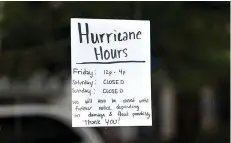 Hurricane
Hours
Friday: 12p - 4p
Saturday: CLOSED
Sunday: CLOSED
We will also be closed until
further notice depending
on damage & flood possibility
THANK YOU!